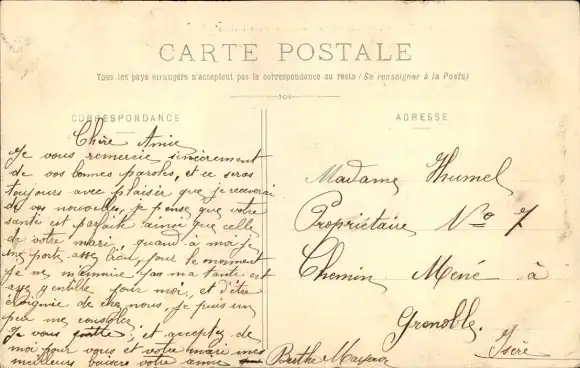 CARTE POSTALE
Tous les pays étrangers n'acceptent pas la correspondance au recto (Se renseigner à la Poste)
CORRESPONDANCE
ADRESSE
Chère Amie
Je vous remercie sincèrement
de vos bonnes paroles, et ce seras
toujours avec plaisir que je recevrai
de vos nouvelles, je pense que votre
santé est parfaite ainsi que celle
de votre mari, quand à moi je
me porte assez bien, pour le moment
je ne m'ennuie pas ma tante est
assez gentille pour moi, et d'être
éloignée de chez nous, je puis un
peu me consoler.
Je vous quitte, et acceptez de
moi pour vous et votre mari mes
meilleurs baisers votre amie
Berthe
Madame Thumel
Propriétaire No 7
Chemin Mené à
Grenoble.
Isère